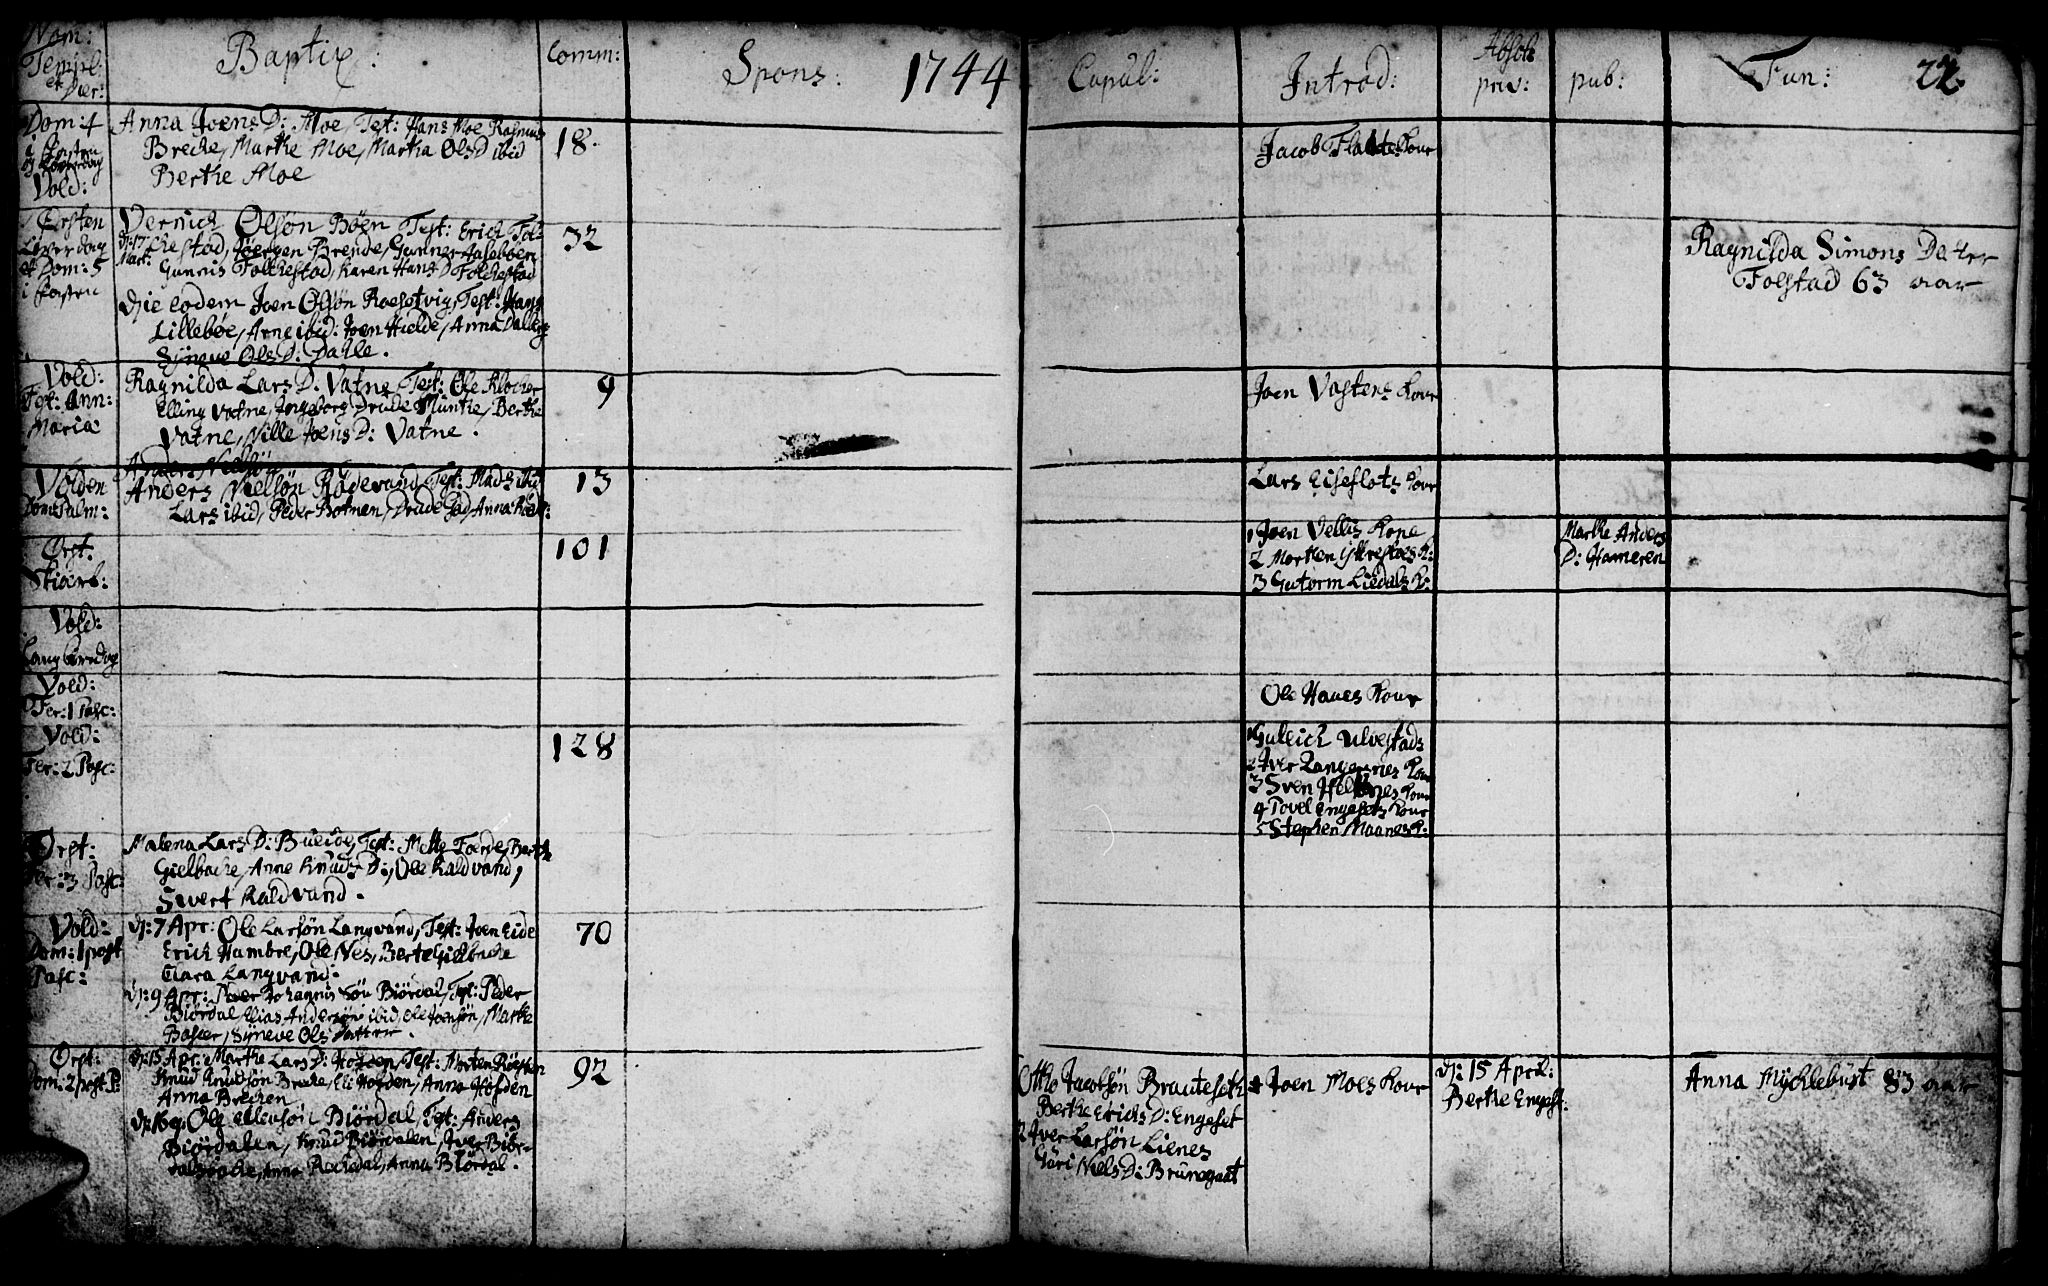 Nom:
Templ:
et
Dier:
Baptiz:
Comm:
Spons:
1744
Copul:
Introd:
Absol:
priv:
pub:
Fun:
22.
Dom: 4
i Fasten
og Løverdag
Vold:
Anna Joens D: Moe, Test: Hans Moe Rasmus
Breche, Marthe Moe, Martha Ols D ibid
Berthe Moe
18.
Jacob Flaate Kone
Ørsten
Løverdag
et Dom: 5
i Fasten
Vernich Olsøn Bøen Test: Erich Fol-
d: 17
Mart:
chestad, Jørgen Brende, Gunner Aasebøen
Gunnis Folchestad, Karen Hans D Folchestad
die eodem Joen Olsøn Roesetvig, Test: Hans
Lillebøe, Arne ibid: Joen Hielde, Anna Dalberg
Syneve Ols D: Dahle.
32
Ragnilda Simons Datter
Folstad 63 aar
Vold:
Fest: Ann:
Mariæ
Ragnilda Lars D: Vatne, Test: Ole Klocher
Elling Vatne, Ingeborg Drude Munthe, Berthe
Vatne, Nille Joens D: Vatne.
9
Joen Vastens Kone
Volden
Dom: Palm:
Anders Nielsøn
Anders Nielsøn Rødevand, Test: Mads ibid
Lars ibid, Peder Botnen, Drude
13
Lars Eiseflots Kone
Ørst:
Skiert:
101
1 Joen Vellis Kone
2 Morten Ytrestøes K:
3 Gutorm Liedals K:
Marthe Anders
D: Hameren
Vold:
Langfredag
Vold:
Fer: 1 Pasc:
Ole Hanes Kone
Vold:
Fer: 2 Pasc:
128
1 Gullich Ulvestads
2 Iver Langenes Kone
3 Sven Kone
4 Povel Engesets Kone
5 Stephen Maanes K:
Ørst:
Fer: 3 Pasc:
Malena Lars D: Buesøe, Test: Mette Førde, Berthe
Gielbache, Anne Knuds D:, Ole Kaldvand,
Sivert Kaldvand.
Vold:
Dom: 1 post
Pasc:
d: 7 Apr: Ole Larsøn Langvand, Test: Joen Eide
Erich Hambre, Ole Nes, Berte Gielbache
Clara Langvand:
d: 9 Apr: Peder Johannis Søn Biørdal, Test: Peder
Biørdal Elias Andersøn ibid, Ole Joensøn, Marthe
Syneve Ols Datter.
70
Ørst:
Dom: 2 post P:
d: 15 Apr: Marthe Lars D: Hofden, Test: Morten
Knud Knudsøn Breche, Eli Hofden, Anna Hofden
Anna Brechen
d: 16 Ole Ellensøn Biørdal, Test: Anders
Biørdalen, Knud Biørdalen, Iver Biør-
dalsbache, Anna Anna Biørdal.
92
Otthe Jacobsøn Brauteseth
Berthe Erichs D: Engeset
2 Iver Larsøn Lienes
Niels D: Brunegaat
Joen Moes Kone
d: 15 April:
Berthe Engeset:
Anna Mychlebust 83 aar